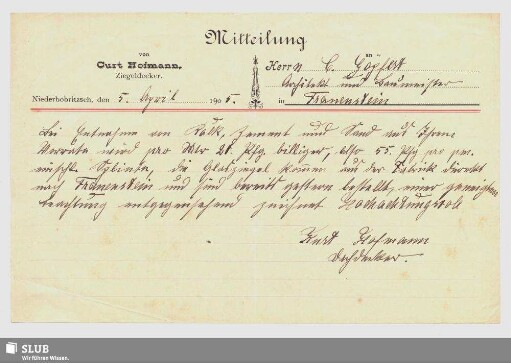 Mitteilung
von
Curt Hofmann,
Ziegeldecker.
an
Herrn C. Göpfert
Architekt und Baumeister
Niederbobritzsch, den 5. April 1905.
in Frauenstein
Bei Entnahme von Kalk, Zement und Sand aus Ihrem
Vorrate wird pro Mtr 20 Pfg billiger, also 55 Pfg pr
die Glasziegel kommen aus der Fabrik direkt
nach Frauenstein und sind bereits gestern bestellt, einer geneigten
Beachtung entgegensehend zeichnet Hochachtungsvoll
Kurt Hofmann
Dachdecker.
SLUB
Wir führen Wissen.